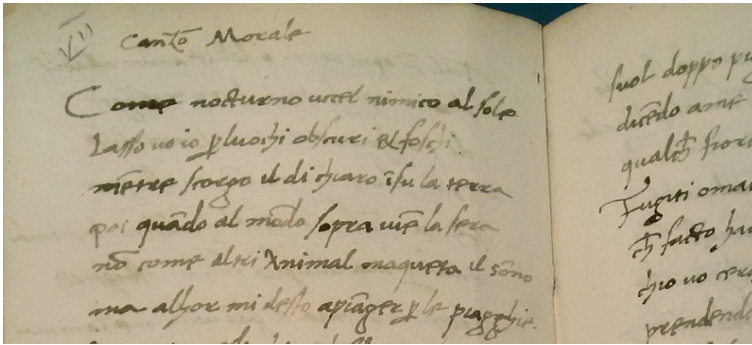 VII
Canto Morale
Come nocturno uccel nimico al sole
Lasso uo io ꝑ luochi obscuri & foschi
mētre scorgo il di chiaro ī su la terra
poi quādo al mōdo sopra uiē la sera
nō come altri Animal maqueta il sōno
ma alhor mi desto a piāger ꝑ le piagghie.
suol doppo
dicēdo ame
qualch̄ fior
Fugiti omai
ch̄ facto
chio uo cer
prendend